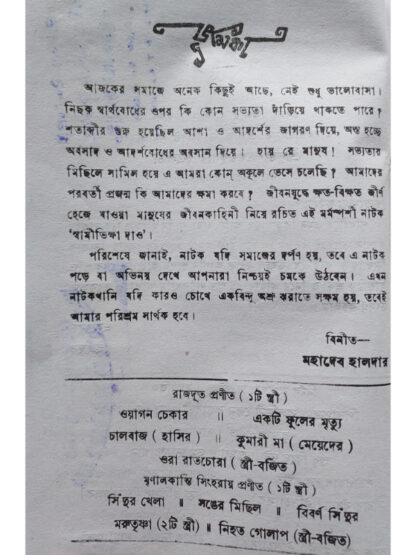 ভূমিকা
আজকের সমাজে অনেক কিছুই আছে, নেই শুধু ভালোবাসা।
নিছক স্বার্থবোধের ওপর কি কোন সভ্যতা দাঁড়িয়ে থাকতে পারে?
শতাব্দীর শুরু হয়েছিল আশা ও আদর্শের জাগরণ দিয়ে, অন্ত হচ্ছে
অবসাদ ও আদর্শবোধের অবসান দিয়ে। হায় রে মানুষ! সভ্যতার
মিছিলে সামিল হয়ে এ আমরা কোন্ অকূলে ভেসে চলেছি? আমাদের
পরবর্তী প্রজন্ম কি আমাদের ক্ষমা করবে? জীবনযুদ্ধে ক্ষত-বিক্ষত জীর্ণ
হেজে যাওয়া মানুষের জীবনকাহিনী নিয়ে রচিত এই মর্মস্পর্শী নাটক
'স্বামীভিক্ষা দাও'।
পরিশেষে জানাই, নাটক যদি সমাজের দর্পণ হয়, তবে এ নাটক
পড়ে বা অভিনয় দেখে আপনারা নিশ্চয়ই চমকে উঠবেন। এখন
নাটকখানি যদি কারও চোখে একবিন্দু অশ্রু ঝরাতে সক্ষম হয়, তবেই
আমার পরিশ্রম সার্থক হবে।
বিনীত—
মহাদেব হালদার
রাজদূত প্রণীত (১টি স্ত্রী)
ওয়াগন চেকার ॥ একটি ফুলের মৃত্যু
চালবাজ (হাসির) ॥ কুমারী মা (মেয়েদের)
ওরা রাতচোরা (স্ত্রী-বর্জিত)
মৃণালকান্তি সিংহরায় প্রণীত (১টি স্ত্রী)
সিঁদুর খেলা ॥ সঙের মিছিল ॥ বিবর্ণ সিঁদুর
মরুতৃষ্ণা (২টি স্ত্রী) ॥ নিহত গোলাপ (স্ত্রী-বর্জিত)